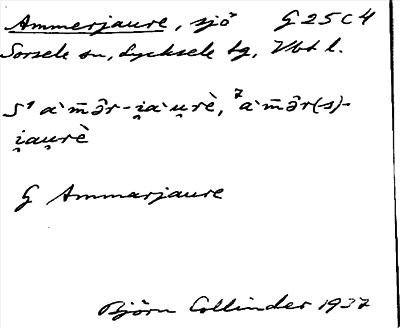 Ammerjaure, sjö G 25 C 4
Sorsele sn, Lycksele lg, Vbt l.
S¹ a`m̄ə̂r-i̯a`u̯rè, ⁷a`m̄ə̂r(s)-
i̯au̯rè
G Ammarjaure
Björn Collinder 1937